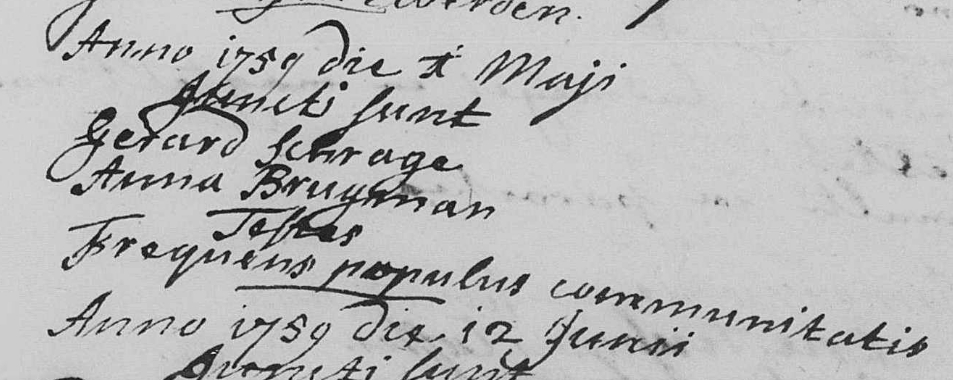 Anno 1759 die 1 Maji
Juncti sunt
Gerard Schrage
Anna Brugman
Testes
Frequens populus communitatis
Anno 1759 die 12 Junii
Juncti sunt